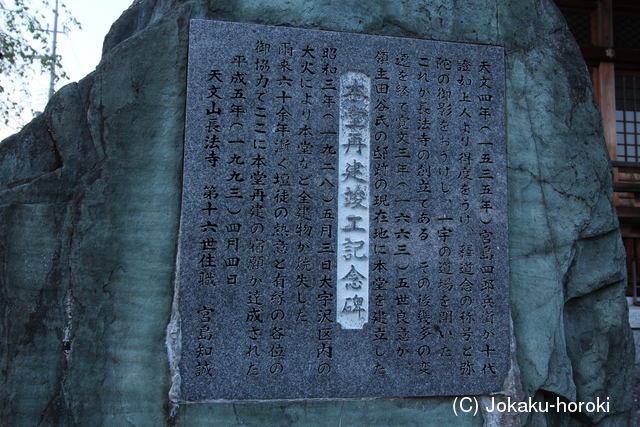 天文四年(一五三五年)宮島四郎兵衛が十代
證如上人より得度をうけ 釋道念の称号と弥
陀の御影をちうけし 一宇の道場を開いた
これが長法寺の創立である その後幾多の変
遷を経て寛文三年(一六六三)五世良意が
領主田谷氏の邸跡の現在地に本堂を建立した
本堂再建竣工記念碑
昭和三年(一九二八)五月三日大字沢区内の
大火により本堂など全建物が焼失した
爾来六十余年漸く壇徒の熱意と有縁の各位の
御協力でここに本堂再建の宿願が達成された
平成五年(一九九三)四月四日
天文山長法寺 第十六世住職 宮島知誠
(C) Jokaku-horoki